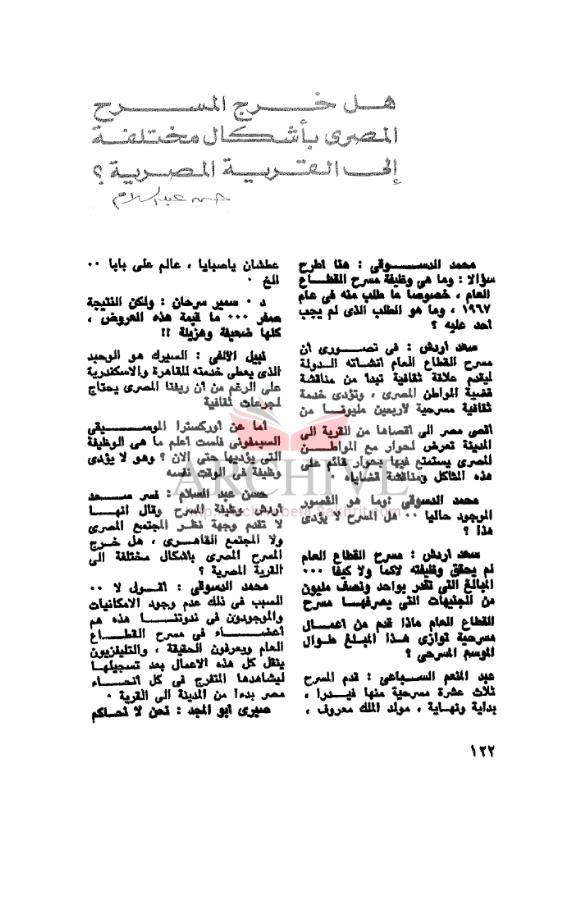 هل خرج المسرح
المصرى بأشكال مختلفة
إلى القرية المصرية ؟
حسن عبد السلام
محمد الدسوقى : هنا اطرح
سؤالا : وما هى وظيفة مسرح القطاع
العام ، خصوصا ما طلب منه فى عام
١٩٦٧ ، وما هو الطلب الذى لم يجب
احد عليه ؟
سعد أردش : فى تصورى أن
مسرح القطاع العام أنشأته الدولة
ليقدم علاقة ثقافية تبدأ من مناقشة
قضية المواطن المصرى ، وتؤدى خدمة
ثقافية مسرحية لأربعين مليونا من
أقصى مصر الى أقصاها من القرية الى
المدينة تعرض لحوار مع المواطن
المصرى يستمتع فيها بحوار قائم على
هذه المشاكل ومناقشة قضاياه ٠
محمد الدسوقى : وما هو القصور
الموجود حاليا ٠٠ هل المسرح لا يؤدى
هذا ؟
سعد أردش : مسرح القطاع العام
لم يحقق وظيفته لاكما ولا كيفا ٠٠٠
المبالغ التى تقدر بواحد ونصف مليون
من الجنيهات التى يصرفها مسرح
القطاع العام ماذا قدم من أعمال
مسرحية توازى هذا المبلغ طوال
الموسم المسرحى ؟
عبد المنعم السباعى : قدم المسرح
ثلاث عشرة مسرحية منها فيدرا ،
بداية ونهاية ، مولد الملك معروف ،
عطشان ياصبايا ، عالم على بابا ٠٠
الخ ٠
د ٠ سمير سرحان : ولكن النتيجة
صفر ٠٠٠ ما قيمة هذه العروض ،
كلها ضعيفة وهزيلة !!
نبيل الألفى : السيرك هو الوحيد
الذى يعطى خدمته للقاهرة والاسكندرية
على الرغم من أن ريفنا المصرى يحتاج
لجرعات ثقافية
أما عن أوركسترا الموسيقى
السيمفونى فلست أعلم ما هى الوظيفة
التى يؤديها حتى الآن ؟ وهو لا يؤدى
وظيفة فى الوقت نفسه
حسن عبد السلام : فسر سعد
أردش وظيفة المسرح وقال انها
لا تقدم وجهة نظر المجتمع المصرى
ولا المجتمع القاهرى ، هل خرج
المسرح المصرى بأشكال مختلفة الى
القرية المصرية ؟
محمد الدسوقى : أقول لا ٠٠
السبب فى ذلك عدم وجود الامكانيات
والموجودون فى ندوتنا هذه هم
أعضاء فى مسرح القطاع
العام ويعرفون الحقيقة ، والتليفزيون
ينقل كل هذه الأعمال بعد تسجيلها
ليشاهدها المتفرج فى كل أنحاء
مصر بدءا من المدينة الى القرية ٠
صبرى أبو المجد : نحن لا نحاكم
١٢٢
ARCHIVE